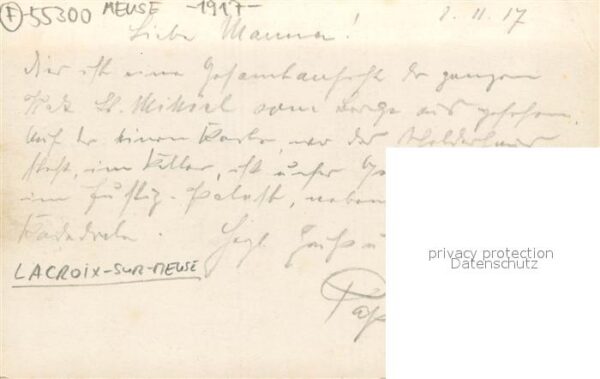 F-55300 MEUSE -1917-
1.11.17
Liebe Mamma!
Dies ist eine Gesamtansicht der ganzen
Stadt St. Mihiel vom Berge aus gesehen.
Auf der einen Karte, wo das Schilderhaus
steht, im Keller, ist unser
im Justiz-Palast, neben
Katedrale. Herzl. Gruß u
LACROIX-SUR-MEUSE
privacy protection
Datenschutz